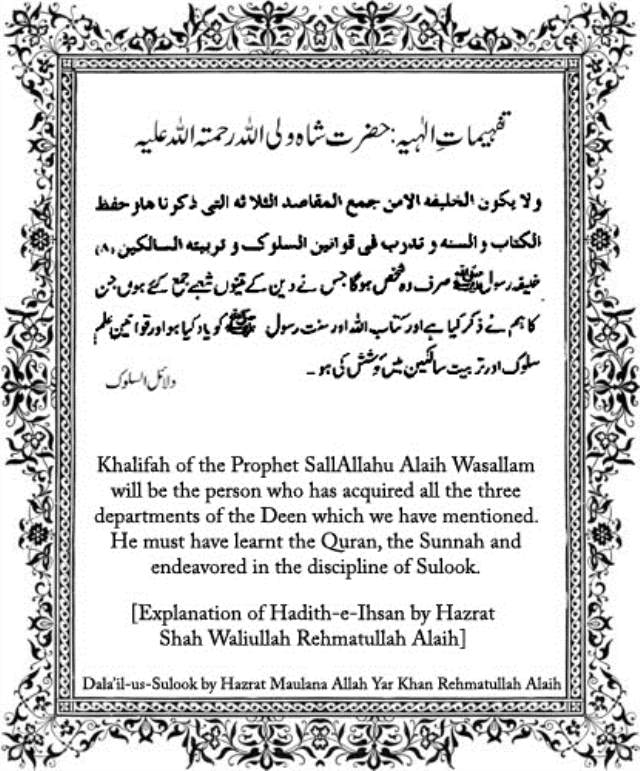 تفہیماتِ الٰہیہ: حضرت شاہ ولی اللہ رحمتہ اللہ علیہ
ولا یکون الخلیفه الامن جمع المقاصد الثلاثه التی ذکرنا هاو حفظ
الکتاب والسنه و تدرب فی قوانین السلوک و تربیته السالکین (۸)
خلیفہ رسول ﷺ صرف وہ شخص ہوگا جس نے دین کے تینوں شعبے جمع کئے ہوں جن
کا ہم نے ذکر کیا ہے اور کتاب اللہ اور سنت رسول ﷺ کو یاد کیا ہو اور قوانین علم
سلوک اور تربیت سالکین میں کوشش کی ہو ۔
دلائل السلوک
Khalifah of the Prophet SallAllahu Alaih Wasallam
will be the person who has acquired all the three
departments of the Deen which we have mentioned.
He must have learnt the Quran, the Sunnah and
endeavored in the discipline of Sulook.
[Explanation of Hadith-e-Ihsan by Hazrat
Shah Waliullah Rehmatullah Alaih]
Dala'il-us-Sulook by Hazrat Maulana Allah Yar Khan Rehmatullah Alaih